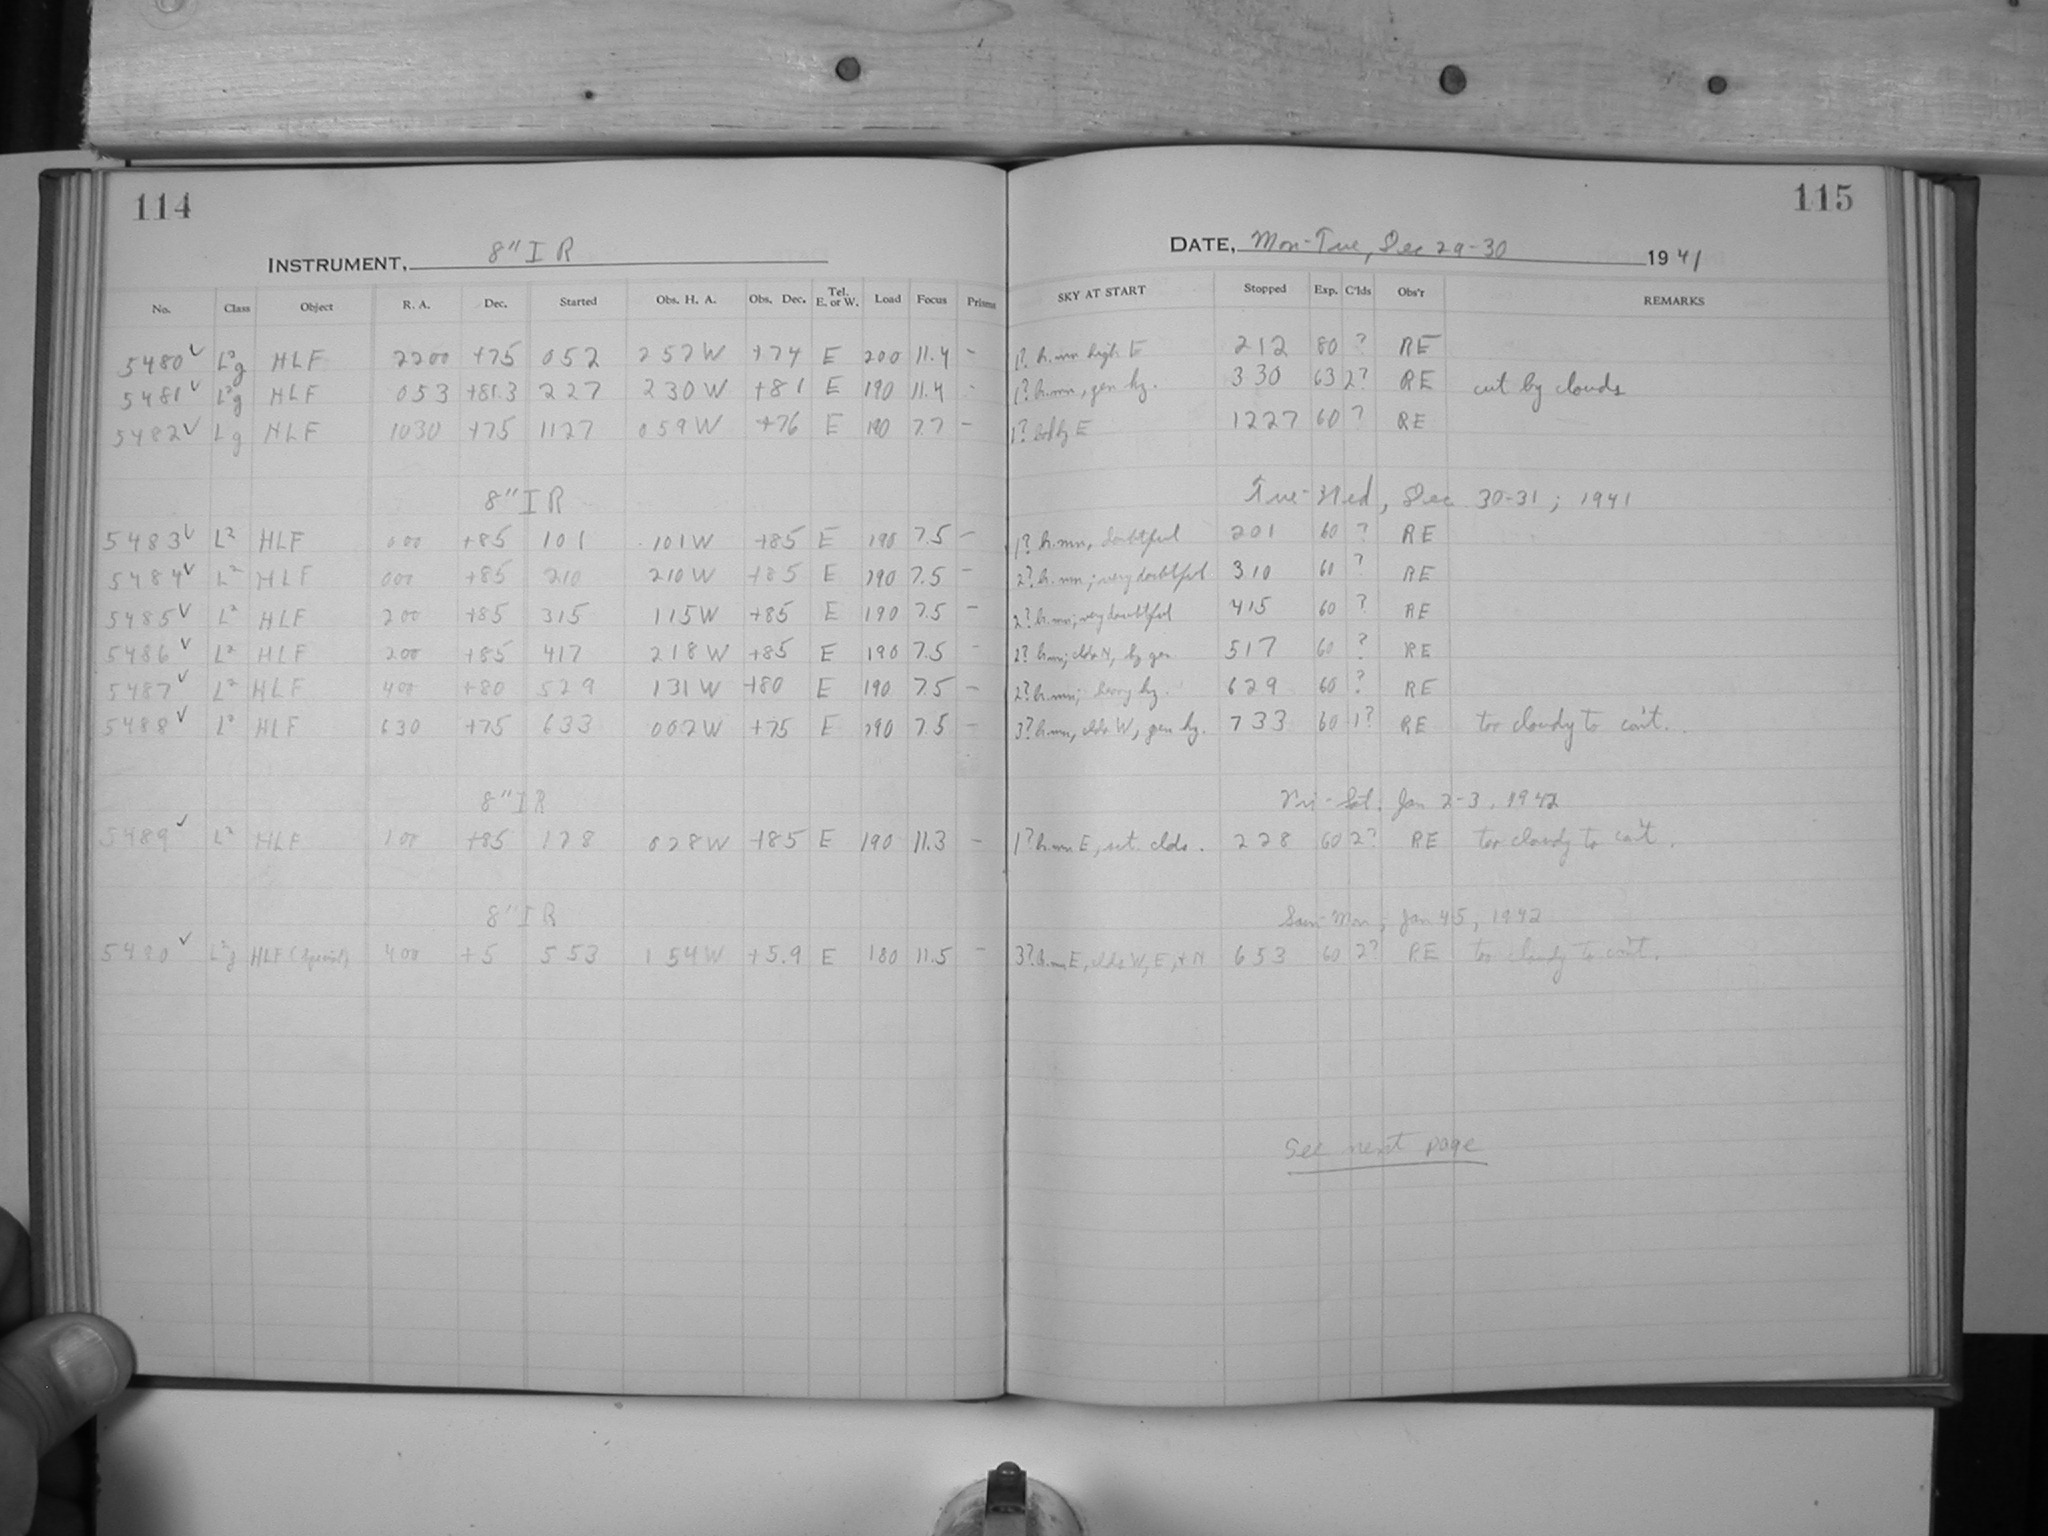 114
115
INSTRUMENT, 8" I R
DATE, Mon-Tue, Dec 29-30 1941
No. Class Object R. A. Dec. Started Obs. H. A. Obs. Dec. Tel. E. or W. Load Focus Prisms SKY AT START Stopped Exp. C'lds Obs'r REMARKS
5480 √ L²g HLF 2200 +75 052 252 W +74 E 200 11.4 - 1? h.mn high E 212 80 ? RE
5481 √ L²g HLF 053 +81.3 227 230 W +81 E 190 11.4 - 1? h.mn, gen hz. 330 63 2? RE cut by clouds
5482 √ Lg HLF 1030 +75 1127 059 W +76 E 190 7.7 - 1? E 1227 60 ? RE
8" I R Tue-Wed, Dec 30-31; 1941
5483 √ L² HLF 000 +85 101 101 W +85 E 190 7.5 - 1? h.mn, doubtful 201 60 ? RE
5484 √ L² HLF 000 +85 210 210 W +85 E 190 7.5 - 2? h.mn; very doubtful 310 60 ? RE
5485 √ L² HLF 200 +85 315 115 W +85 E 190 7.5 - 2? h.mn; very doubtful 415 60 ? RE
5486 √ L² HLF 200 +85 417 218 W +85 E 190 7.5 - 2? h.mn; clds N, hz gen 517 60 ? RE
5487 √ L² HLF 400 +80 529 131 W +80 E 190 7.5 - 2? h.mn; heavy hz. 629 60 ? RE
5488 √ L² HLF 630 +75 633 002 W +75 E 190 7.5 - 3? h.mn, clds W, gen hz. 733 60 1? RE too cloudy to con't.
8" I R Fri-Sat. Jan 2-3, 1942
5489 √ L² HLF 100 +85 128 028 W +85 E 190 11.3 - 1? h.mn E, sct. clds. 228 60 2? RE too cloudy to con't.
8" I R Sun-Mon; Jan 4-5, 1942
5490 √ L²g HLF (special) 400 +5 553 154 W +5.9 E 180 11.5 - 3? h.mn E, clds W, E, + N 653 60 2? RE too cloudy to con't.
See next page